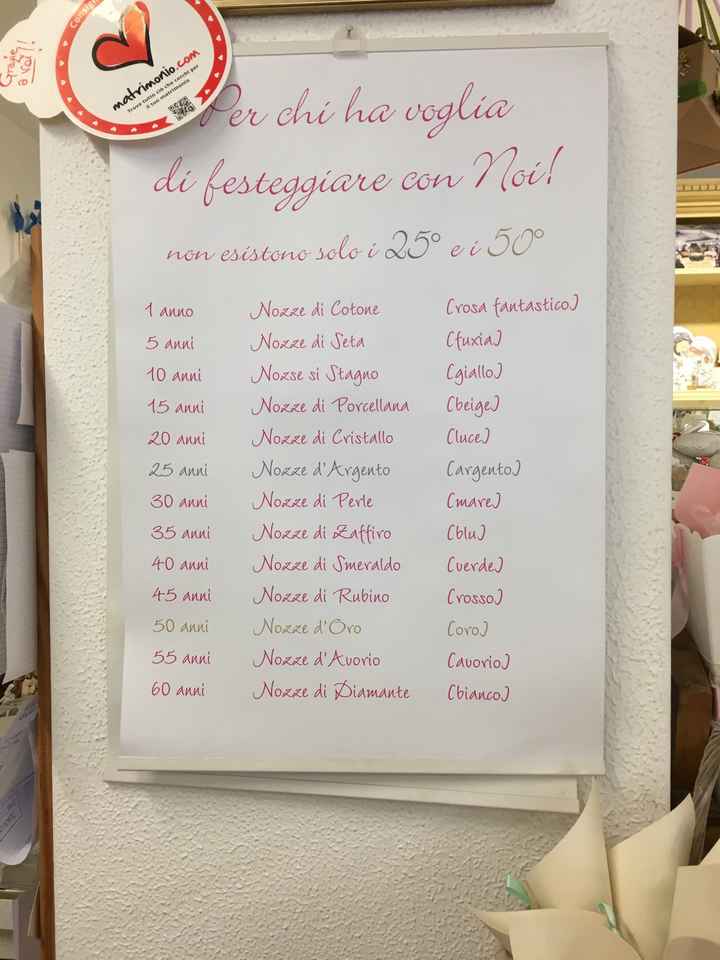 Grazie
a voi!
Consigliato
matrimonio.com
Trova tutto ciò che cerchi per
il tuo matrimonio
Per chi ha voglia
di festeggiare con Noi!
non esistono solo i 25° e i 50°
1 anno Nozze di Cotone (rosa fantastico)
5 anni Nozze di Seta (fuxia)
10 anni Nozse si Stagno (giallo)
15 anni Nozze di Porcellana (beige)
20 anni Nozze di Cristallo (luce)
25 anni Nozze d'Argento (argento)
30 anni Nozze di Perle (mare)
35 anni Nozze di Zaffiro (blu)
40 anni Nozze di Smeraldo (verde)
45 anni Nozze di Rubino (rosso)
50 anni Nozze d'Oro (oro)
55 anni Nozze d'Avorio (avorio)
60 anni Nozze di Diamante (bianco)